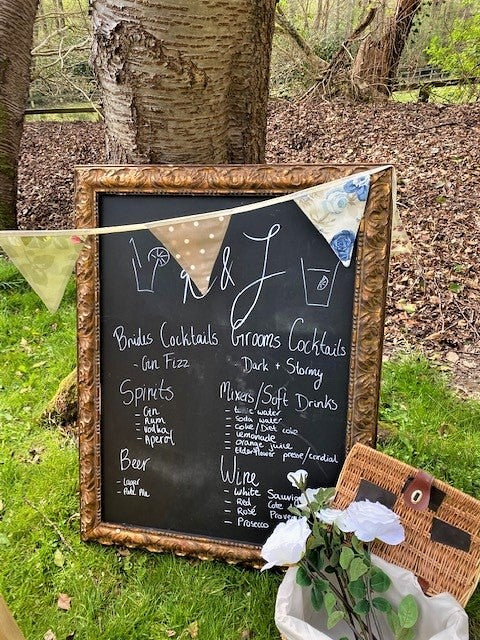 & J
Brides Cocktails
- Gin Fizz
Grooms Cocktails
Dark + Stormy
Spirits
- Gin
- Rum
- Vodka
- Aperol
Mixers/Soft Drinks
- tonic water
- Soda water
- Coke/Diet coke
- lemonade
- orange juice
- Elderflower presse/cordial
Beer
- Lager
- Pale Ale
Wine
- White Sauvig
- Red Cote
- Rosé Proven
- Prosecco